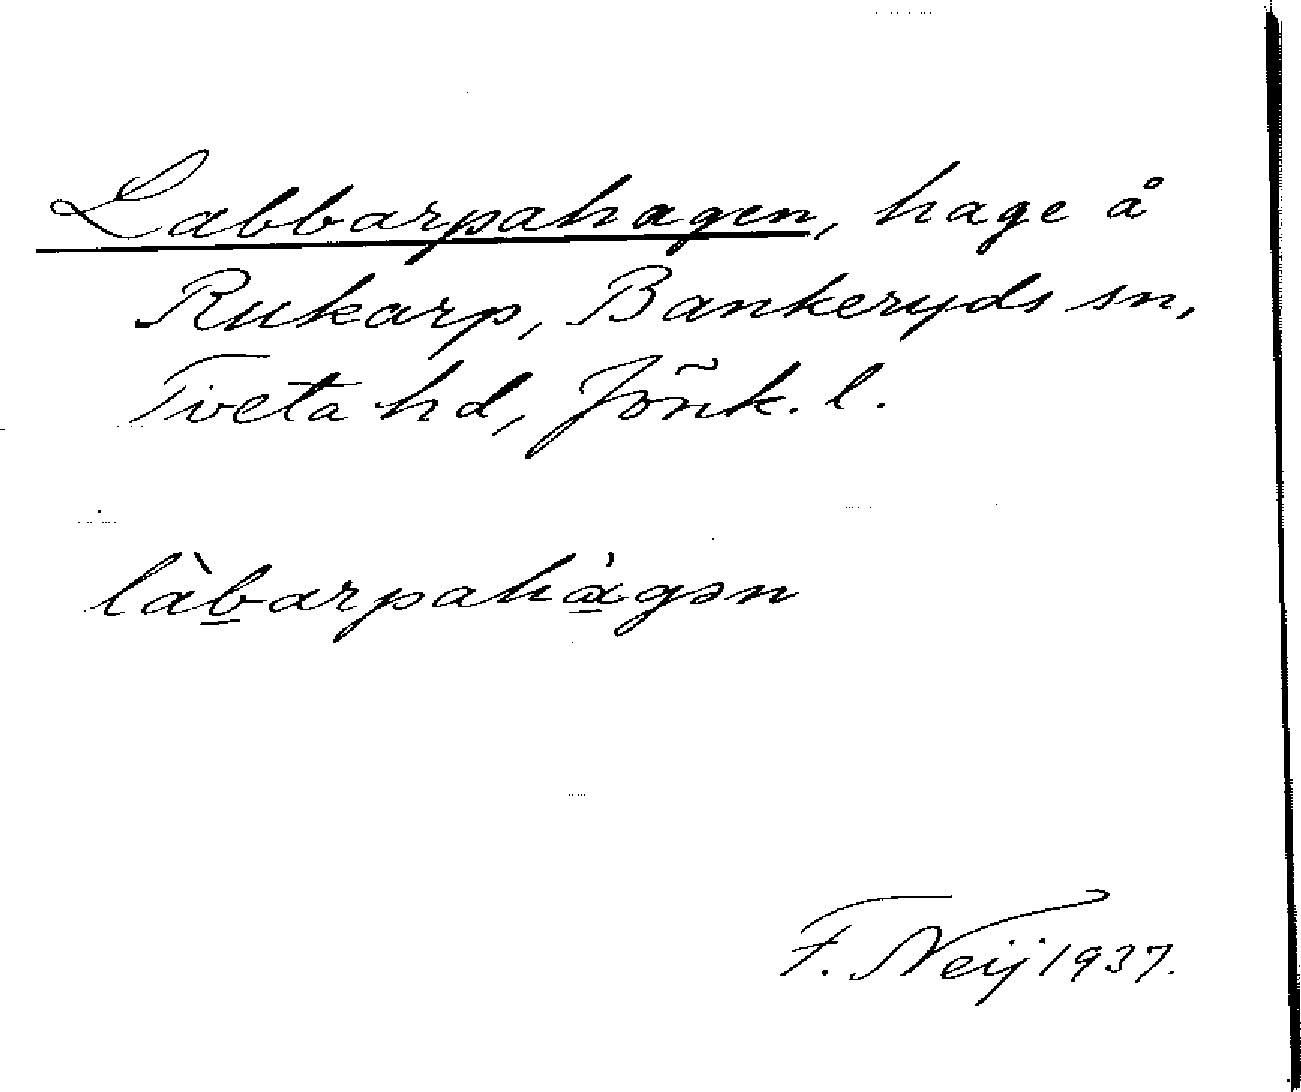 Labbarpahagen, hage å
Rukarp, Bankeryds sn,
Tveta hd, Jönk. l.
làb̲arpahà̲gən
F. Neij 1937.